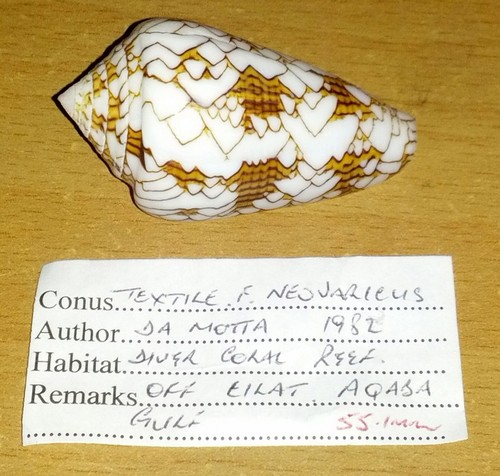 Conus TEXTILE. F. NEOVARICUS
Author DA MOTTA 1982
Habitat DIVER CORAL REEF.
Remarks OFF EILAT. AQABA
GULF 55.1mm